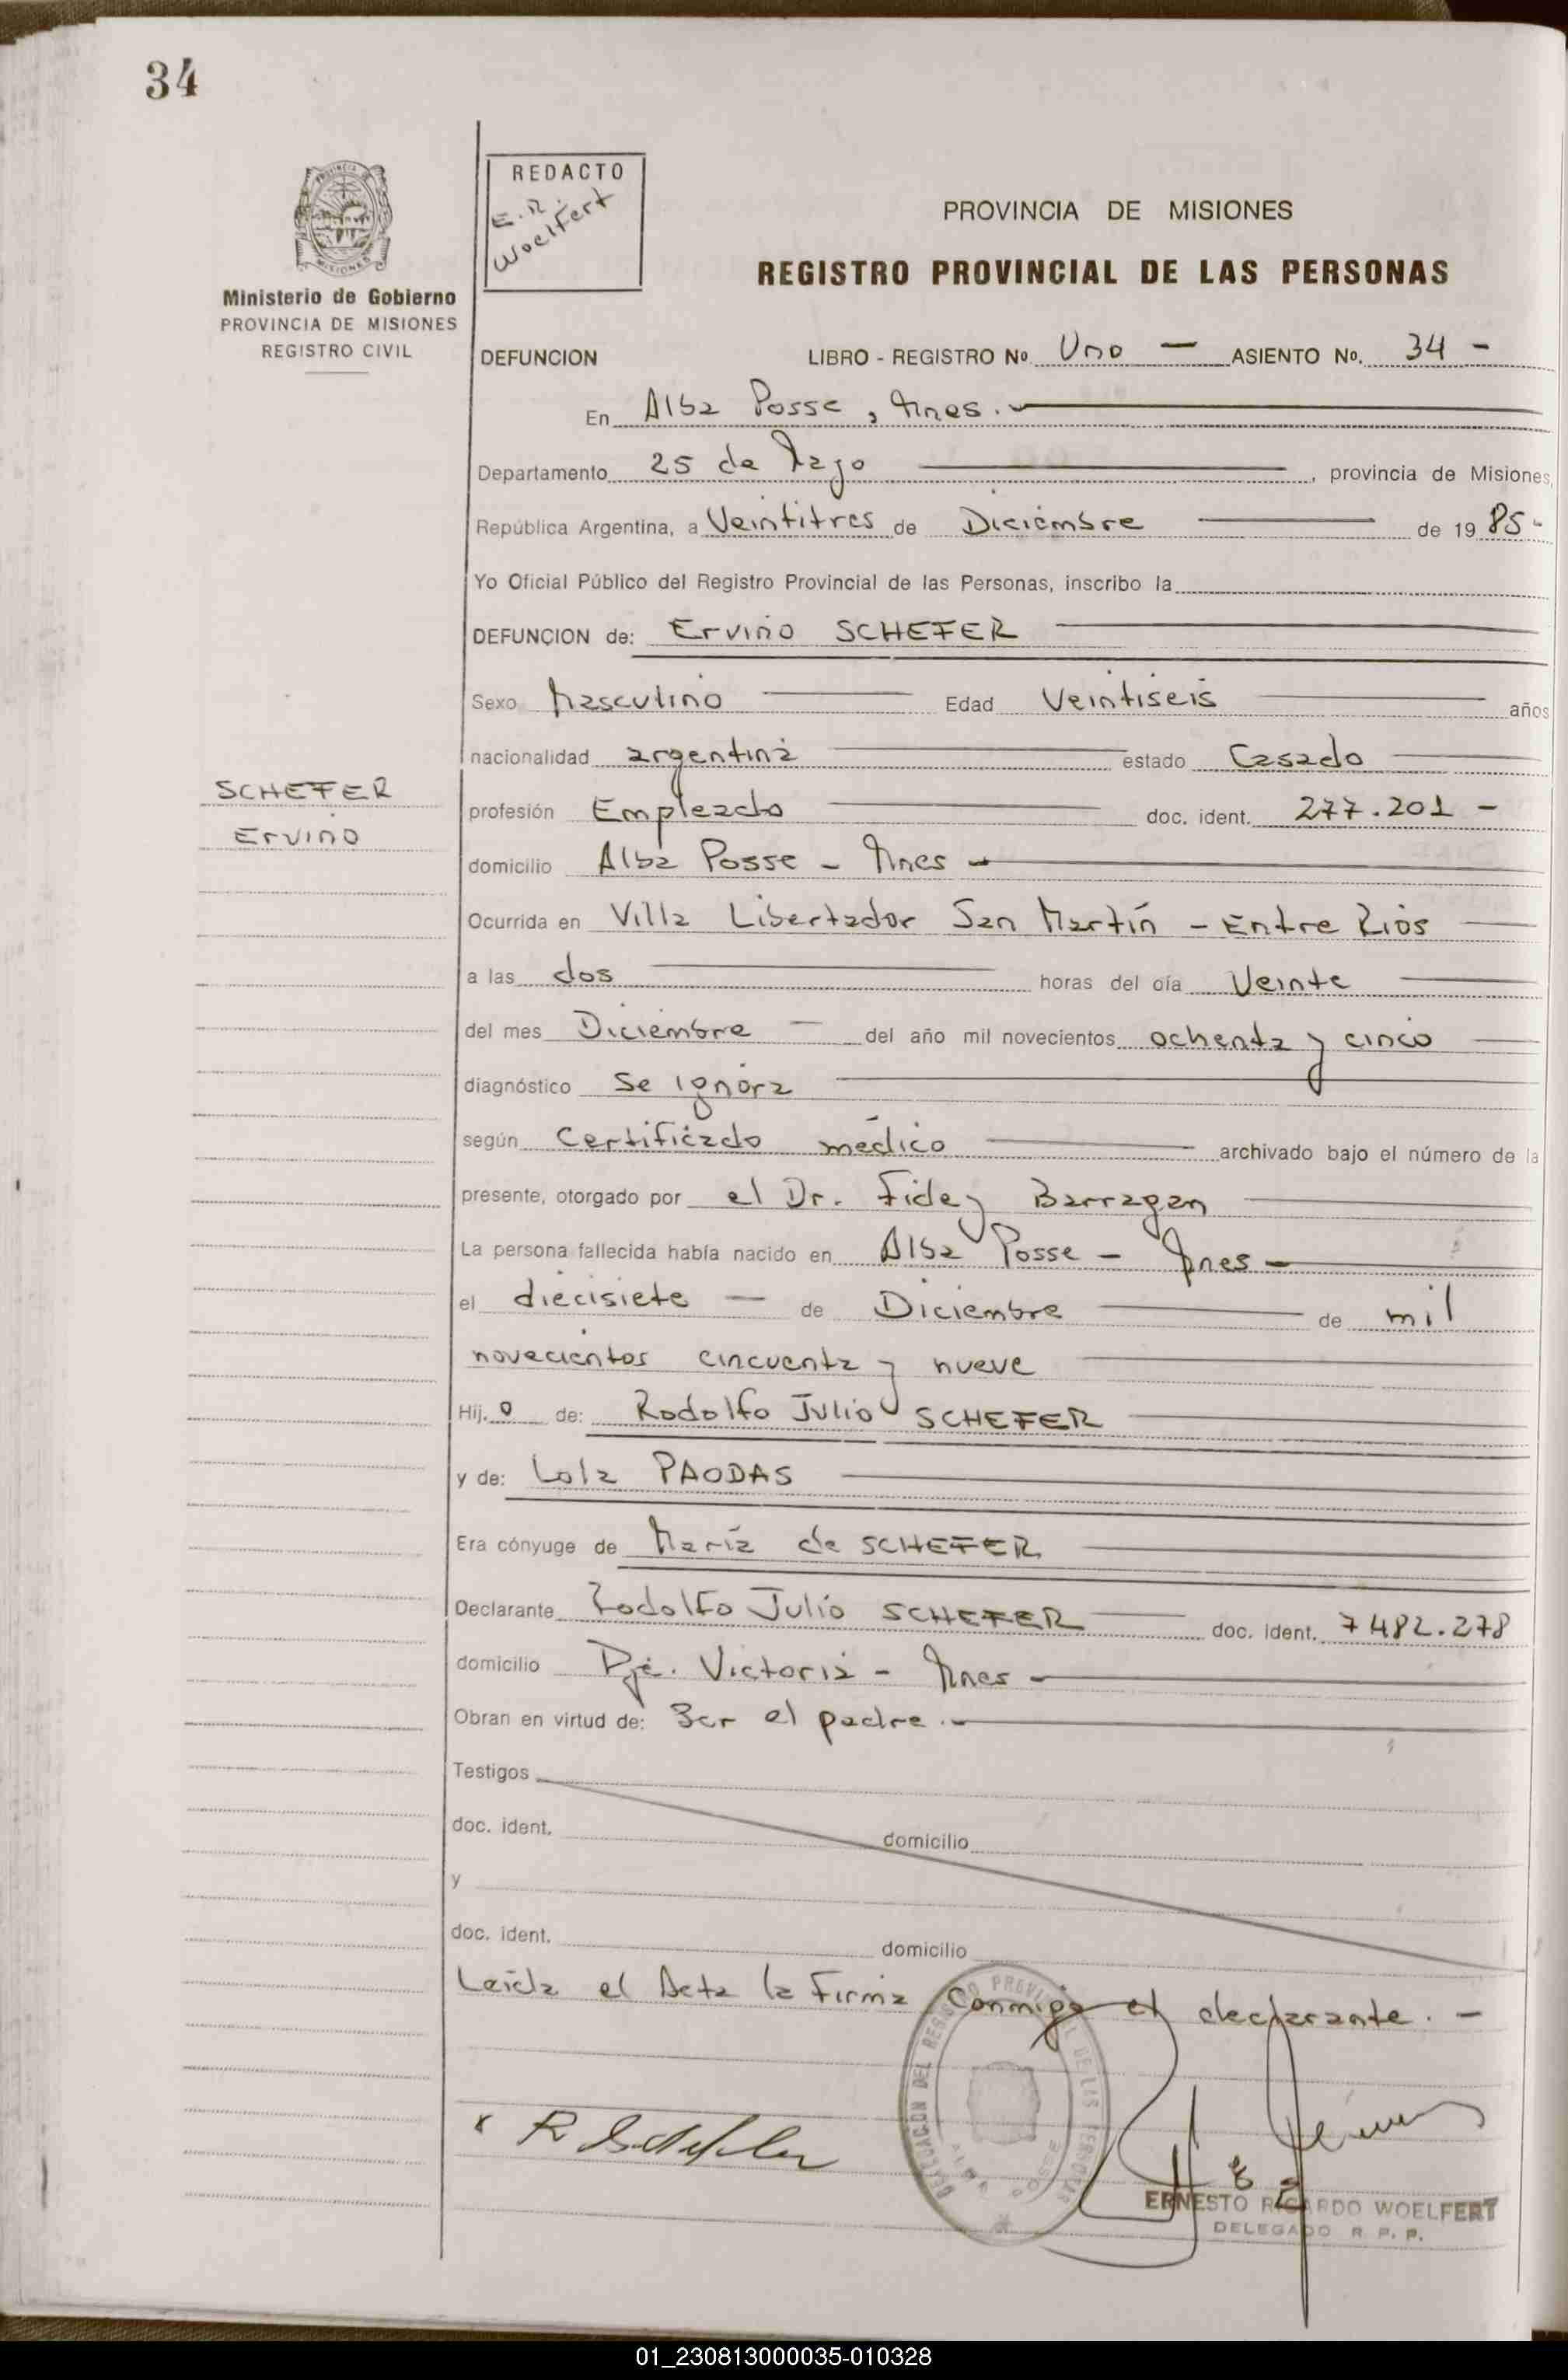 34
PROVINCIA DE
MISIONES
Ministerio de Gobierno
PROVINCIA DE MISIONES
REGISTRO CIVIL
REDACTO
E.R.
Woelfert
PROVINCIA DE MISIONES
REGISTRO PROVINCIAL DE LAS PERSONAS
DEFUNCION LIBRO - REGISTRO Nº Uno — ASIENTO Nº. 34 -
En Alba Posse, Mnes.
Departamento 25 de Mayo, provincia de Misiones,
República Argentina, a Veintitres de Diciembre de 1985-
Yo Oficial Público del Registro Provincial de las Personas, inscribo la
DEFUNCION de: Ervino SCHEFER
Sexo Masculino Edad Veintiseis años
nacionalidad argentina estado Casado
SCHEFER
Ervino
profesión Empleado doc. ident. 277.201 -
domicilio Alba Posse - Mnes -
Ocurrida en Villa Libertador San Martín - Entre Rios
a las dos horas del día Veinte
del mes Diciembre — del año mil novecientos ochenta y cinco
diagnóstico Se ignora
según Certificado médico archivado bajo el número de la
presente, otorgado por el Dr. Fidey Barragan
La persona fallecida había nacido en Alba Posse - Mnes -
el diecisiete — de Diciembre de mil
novecientos cincuenta y nueve
Hij. o de: Rodolfo Julio SCHEFER
y de: Lola PAODAS
Era cónyuge de María de SCHEFER
Declarante Rodolfo Julio SCHEFER doc. ident. 7482.278
domicilio Pje. Victoria - Mnes -
Obran en virtud de: Ser el padre.-
Testigos
doc. ident. domicilio
y
doc. ident. domicilio
Leida el Acta la Firma Conmigo el declarante. -
DELEGACION DEL REGISTRO PROVINCIAL DE LAS PERSONAS
ALBA POSSE
x R
ERNESTO RICARDO WOELFERT
DELEGADO R. P. P.
01_230813000035-010328